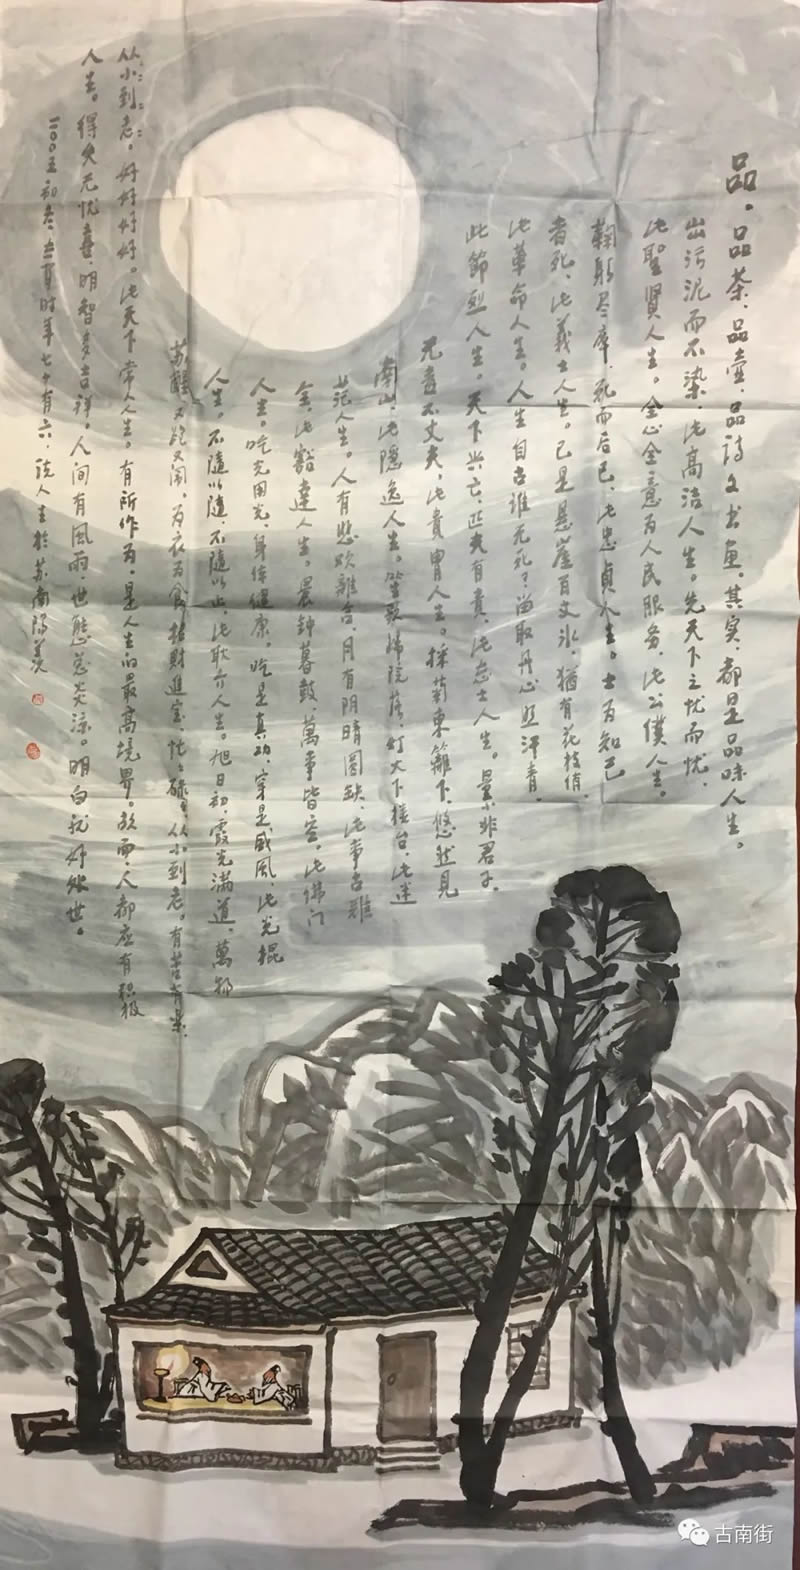 品。品茶、品壶、品诗文书画。其实,都是品味人生。
出污泥而不染,此高洁人生。先天下之忧而忧,
此聖賢人生。全心全意为人民服务,此公僕人生。
鞠躬尽瘁,死而后已,此忠貞人生。士为知己
者死,此義士人生。已是悬崖百丈冰,猶有花枝俏,
此革命人生。人生自古谁无死,留取丹心照汗青,
此節烈人生。天下兴亡,匹夫有責,此志士人生。量非君子,
无毒不丈夫,此貴胄人生。採菊東籬下,悠然見
南山,此隐逸人生。笙歌归院落,灯火下楼台,此迷
茫人生。人有悲欢離合,月有阴晴圆缺,此事古難
全,此豁達人生。晨钟暮鼓,萬事皆空,此佛门
人生。吃光用光,身体健康。吃是真功,穿是威風,此光棍
人生。不随以随,不随以止,此耿介人生。旭日初,霞光满道,萬物
苏醒,又跑又闹。为衣为食,招财進宝,忙忙碌碌,从小到老。有苦有樂,
从小到老。好好好好。此天下常人人生。有所作为,是人生的最高境界。故而,人都应有积极
人生。得失无忧喜,明智多吉祥。人间有風雨,世態总炎涼。明白就好处世。
二〇〇五初冬,时年七十有六,说人生於苏南阳羡
古南街